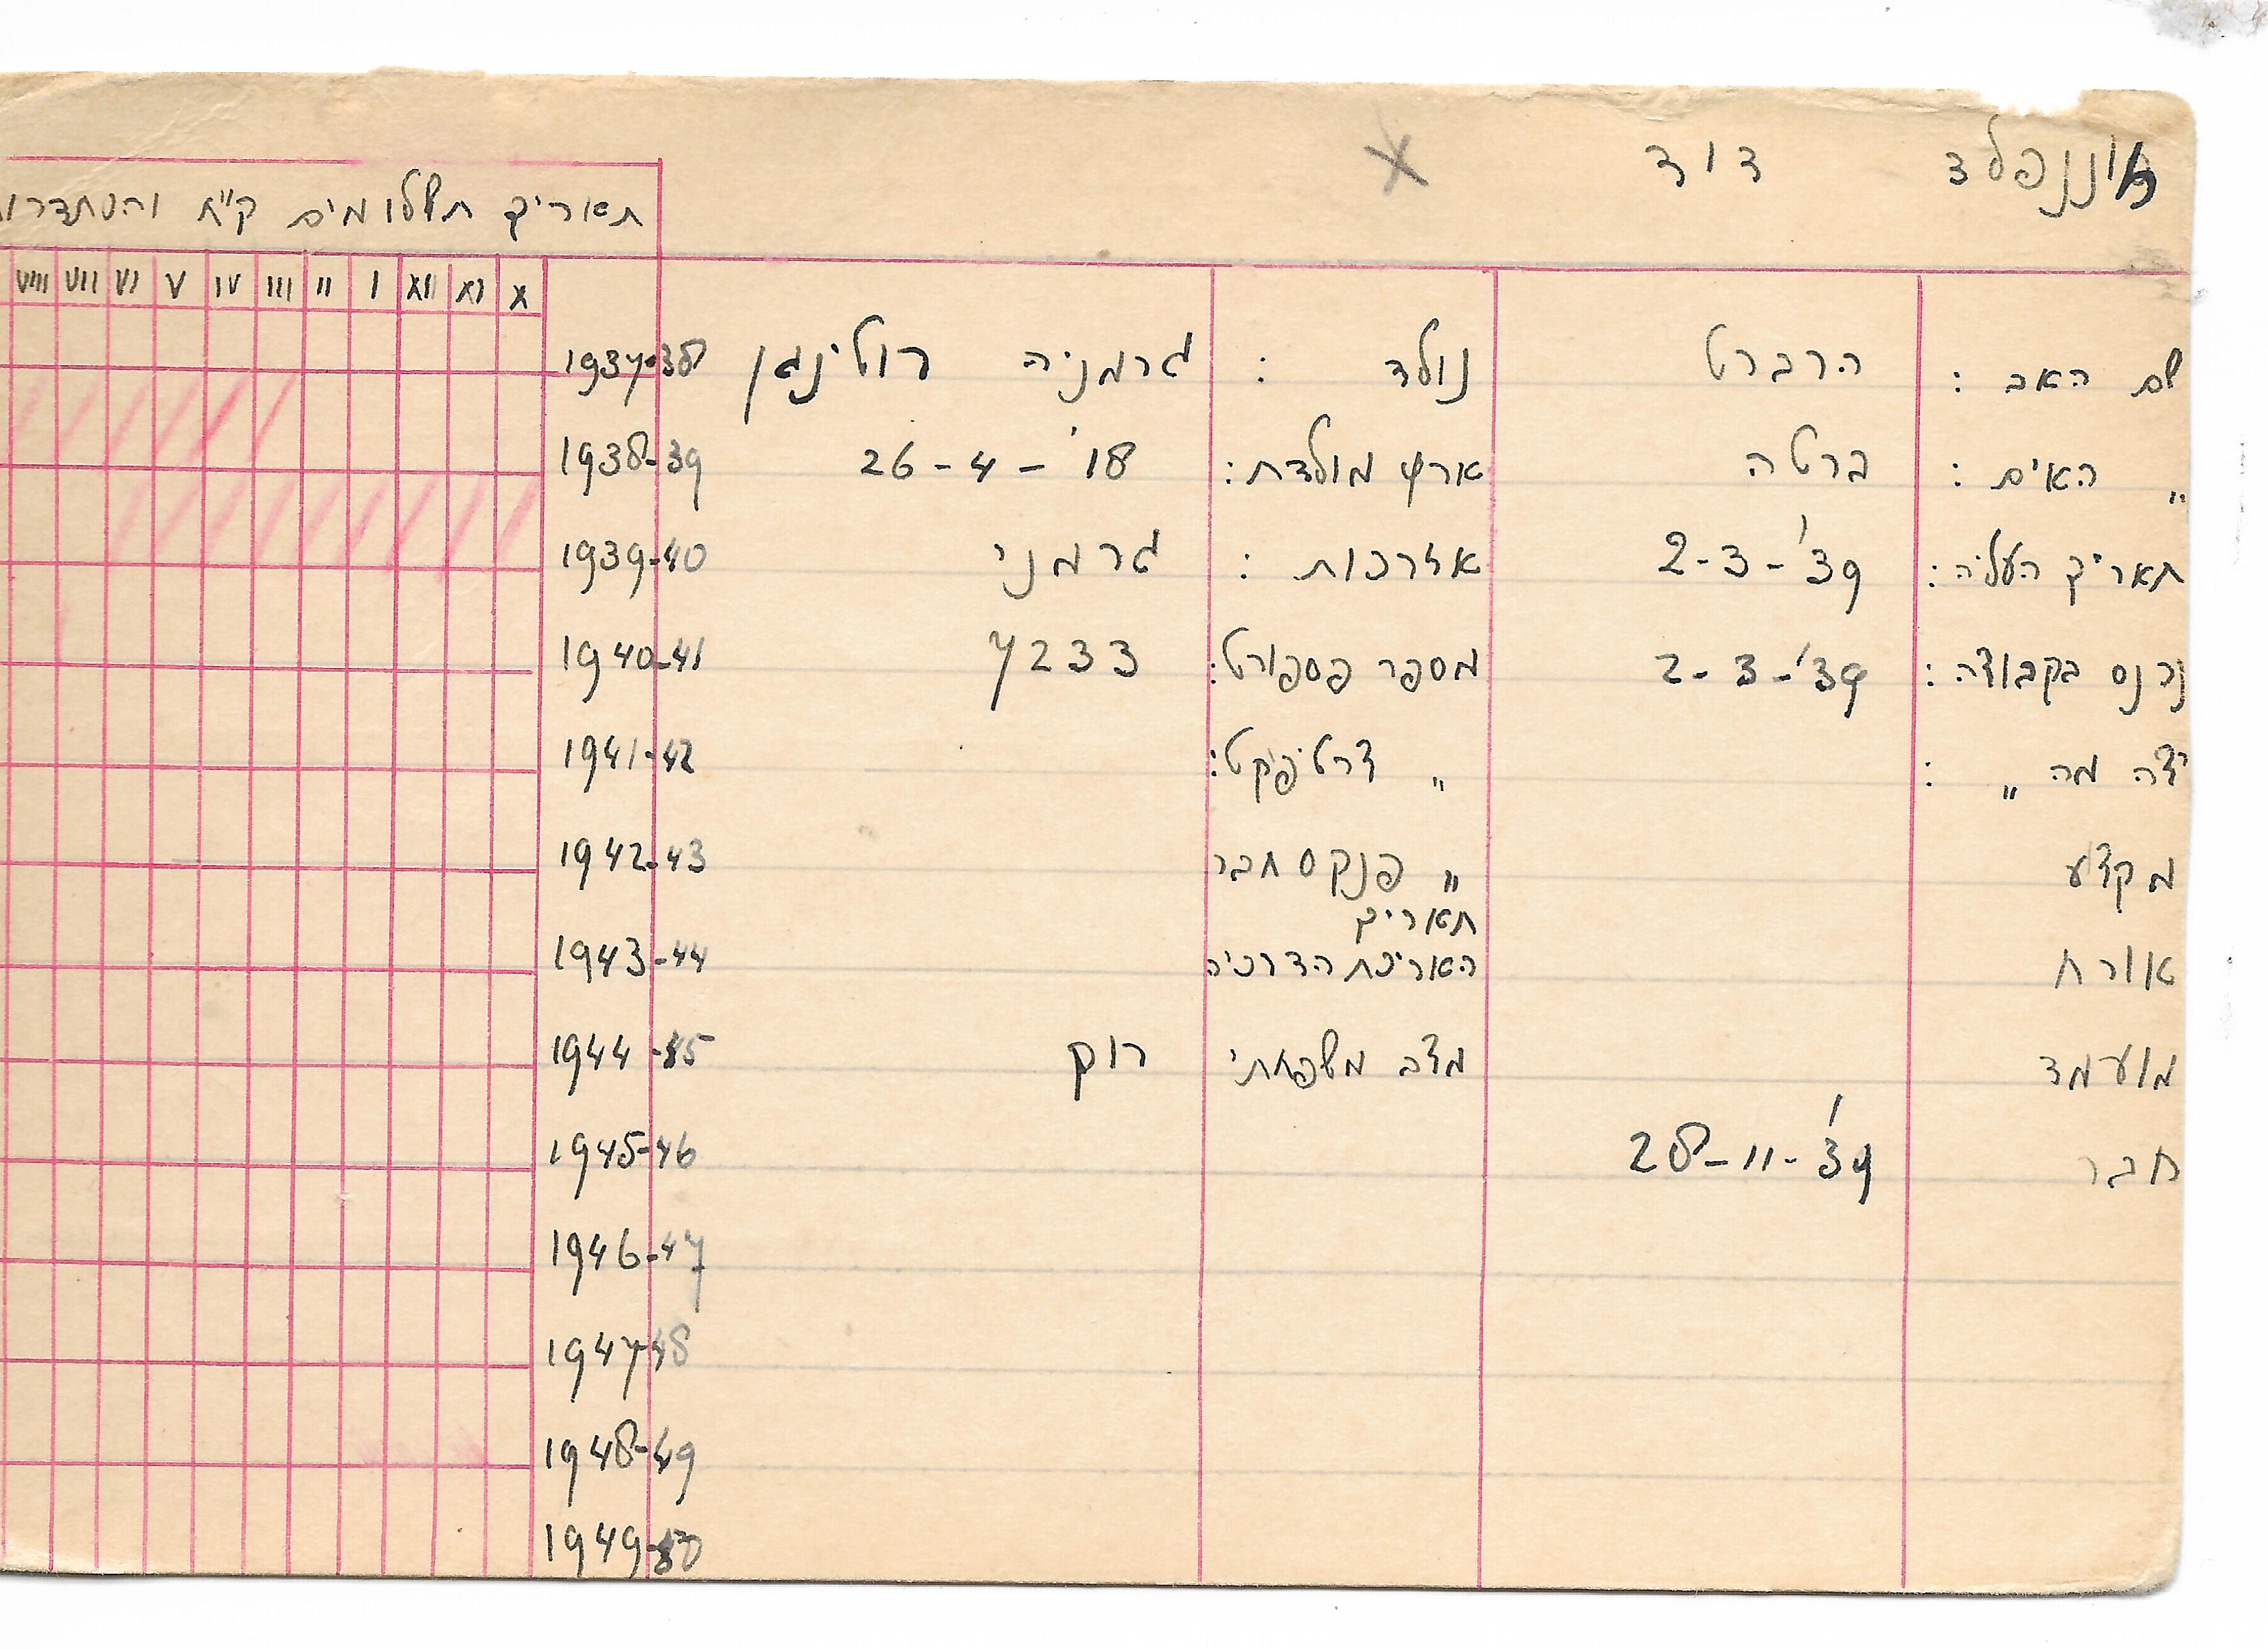 דוד
X
תאריך תשלומים ק"ח והסתדרו
X XI XII I II III IV V VI VII VIII
שם האב : הרברט נולד : גרמניה רוטינגן 1937-38
" האים : ברטה ארץ מולדת: 26-4-'18 1938-39
תאריך העליה: 2-3-'39 אזרכות : גרמני 1939-40
נרנס בקבוצה: 2-3-'39 מספר פספורט: 7233 1940-41
יצה מה " : " צרטיפקט: 1941-42
מקצע " פנקס חבר 1942-43
תאריך
אורח הארכת הדרכיה 1943-44
מועמד מצב משפחתי רוק 1944-45
חבר 28-11-'39 1945-46
1946-47
1947-48
1948-49
1949-50